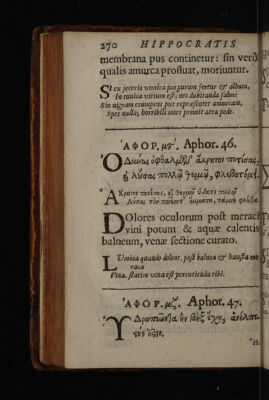 270 HIPPOCRATIS
membrana pus continetur: sin verò
qualis amurca profluat, moriuntur.
Si ex jecoris vomica pus purum fertur & album,
In tunica vitium est, nec dubitanda salus:
Sin nigram erumpens pus repræsentet amurcam,
Spes nulla; horribilis mors premit atra pede.
ἈΦΟΡ. μϛʹ. Aphor. 46.
Ὀδύνας ὀφθαλμῶν ἄκρητον ποτίσας,
ϗ λούσας πολλῷ θερμῷ, φλεβοτόμει.
Dolores oculorum post meraci
vini potum & aquæ calentis
balneum, venæ sectione curato.
Lumina quando dolent, post balnea & hausta me-
raca
Vina, statim vena est percutienda tibi.
ἈΦΟΡ. μζʹ. Aphor. 47.
Ὑδρωπιῶντα ἢν βὴξ ἔχῃ, ἀνέλπι-
στός ἐστιν.